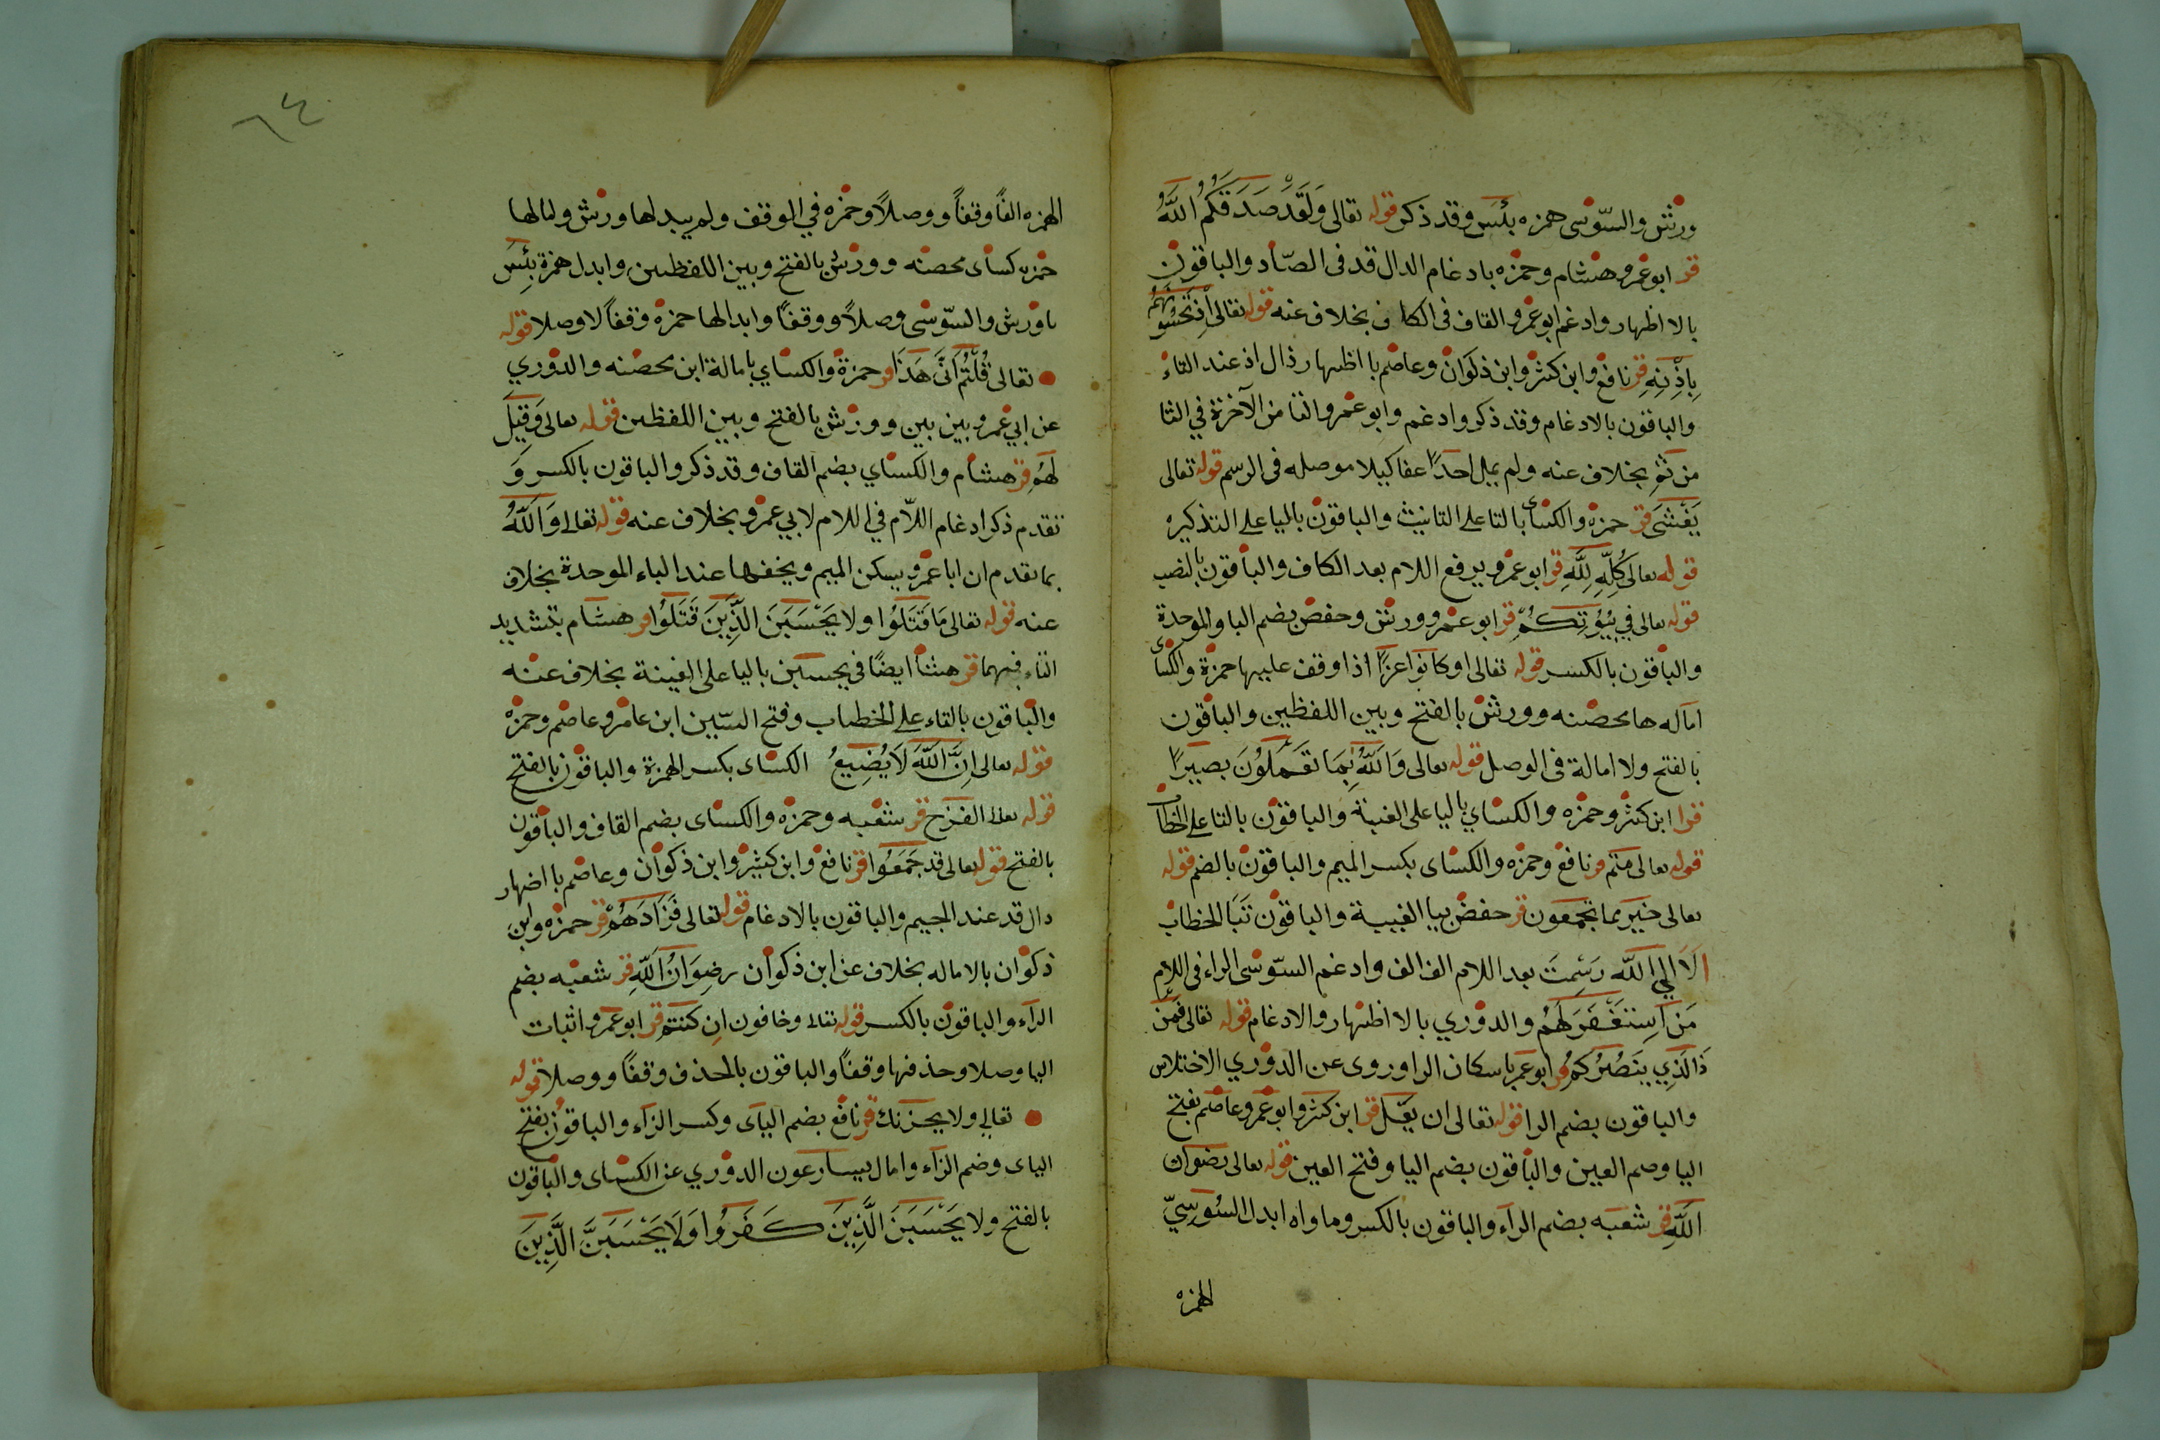 ورش والسّوسى همزه بئس وقد ذكر قوله تعالى وَلَقَدْ صَدَقَكُمُ اللَّهُ
قر ابو عمرو وهشام وحمزه بادغام الدال قد فى الصّاد والباقون
بالاظهار وادغم ابو عمرو القاف فى الكاف بخلاف عنه قوله تعالى اذ تَحُسُّونَهُمْ
بِاِذْنِهِ قر نافع وابن كثير وابن ذكوان وعاصم با اظهار ذال اذ عند التاء
والباقون بالادغام وقد ذكر وادغم وابو عمرو التا من الآخرة في الثا
من ثم بخلاف عنه ولم يمل احدًا عفا كيلا موصله فى الرسم قوله تعالى
يَغْشَى قر حمزه والكساى بالتا على التانيث والباقون باليا على التذكير
قوله تعالى كُلِّهِ لِلَّهِ قر ابو عمرو برفع اللام بعد الكاف والباقون بالنصب
قوله تعالى في بُيُوتِكُمْ قر ابو عمرو وورش وحفص بضم البا والموحدة
والباقون بالكسر قوله تعالى اوكانوا غزًا اذا وقف عليها حمزة والكساى
اماله هامحضنه وورش بالفتح وبين اللفظين والباقون
بالفتح ولا امالة فى الوصل قوله تعالى وَاللَّهُ بِمَا تَعْمَلُونَ بصيرًا
قرا ابن كثير وحمزه والكساي باليا على الغيبة والباقون بالتا على الخطاب
قوله تعالى متم قر نافع وحمزه والكساى بكسر الميم والباقون بالضم قوله
تعالى خير مما تجمعون قر حفص بيا الغيبة والباقون بتا الخطاب
لَاَ الي اللّه رسمت بعد اللام الف الف وادغم السّوسى الراء فى اللام
مَن اَستَغْفَرَ لَهُم والدوري بالا اظهار والادغام قوله تعالى فَمَن
ذَا لَّذِي يَنصُرُكُم قر ابو عمر باسكان الرا وروى عن الدوري الاختلاس
والباقون بضم الرا قوله تعالى ان يَغُلَّ قر ابن كثير وابو عمرو وعاصم بفتح
اليا وضم الغين والباقون بضم اليا وفتح الغين قوله تعالى رضوان
اللَّهِ قر شعبه بضم الراء والباقون بالكسر وماواه ابدل السُوسِيّ
الهمزه
٦٤
الهمزه الفًا وقفاً ووصلاً وحمزه في الوقف ولم يبدلها ورش ولمالها
حمزه كساى محضنه وورش بالفتح وبين اللفظين وابدل همزة بِئْسَ
ورش والسّوسى وصلاً ووقفًا وابدالها حمزه وقفاً لا وصلا قوله
تعالى قُلْتُم اَنَّى هَذَا قر حمزة والكساي بامالة ابن محضنه والدوري
عن ابي عمرو بين بين وورش بالفتح وبين اللفظين قوله تعالى وَقِيلَ
لَهُم قر هشام والكساي بضم القاف وقد ذكر والباقون بالكسر وَ
تقدم ذكر ادغام اللاّم في اللام لابي عمرو بخلاف عنه قوله تعالى وَاللَّهُ
بما تقدم ان ابا عمرو يسكن الميم ويخفها عند الباء الموحدة بخلاف
عنه قوله تعالى مَا قُتِلُوا ولا يَحْسَبَنَ الَّذِينَ قُتِلُوا قر هشام بتشديد
التاء فيهما قر هشا ايضًا في يحسبن باليا على الغيبة بخلاف عنه
والباقون بالتاء على الخطاب وفتح السّين ابن عامر وعاصم وحمزه
قوله تعالى اِنَّ اللَّهَ لَا يُضِيعُ الكساى بكسر الهمزة والباقون بالفتح
قوله تعلا القرح قر شعبه وحمزه والكساى بضم القاف والباقون
بالفتح قوله تعالى قد جَمَعُوا قر نافع وابن كثير وابن ذكوان وعاصم با اضهار
دال قد عند الجيم والباقون بالادغام قوله تعالى فَزَادَهُمْ قر حمزه وابن
ذكوان بالاماله بخلاف عن ابن ذكوان رضِوَانُ اللَّهِ قر شعبه بضم
الراء والباقون بالكسر قوله تعالى وخافون اِن كنتم قر ابو عمرو اثبات
اليا وصلا وحذفها وقفًا والباقون بالحذف وقفًا ووصلا قوله
تعالي ولا يحزنك قر نافع بضم الياى وكسر الزاء والباقون بفتح
الياى وضم الزاء وامال يسارعون الدوري عن الكساى والباقون
بالفتح ولا يَحْسَبَنَ الَّذِينَ كَفَرُوا وَلَا يَحْسَبَنَّ الَّذِينَ